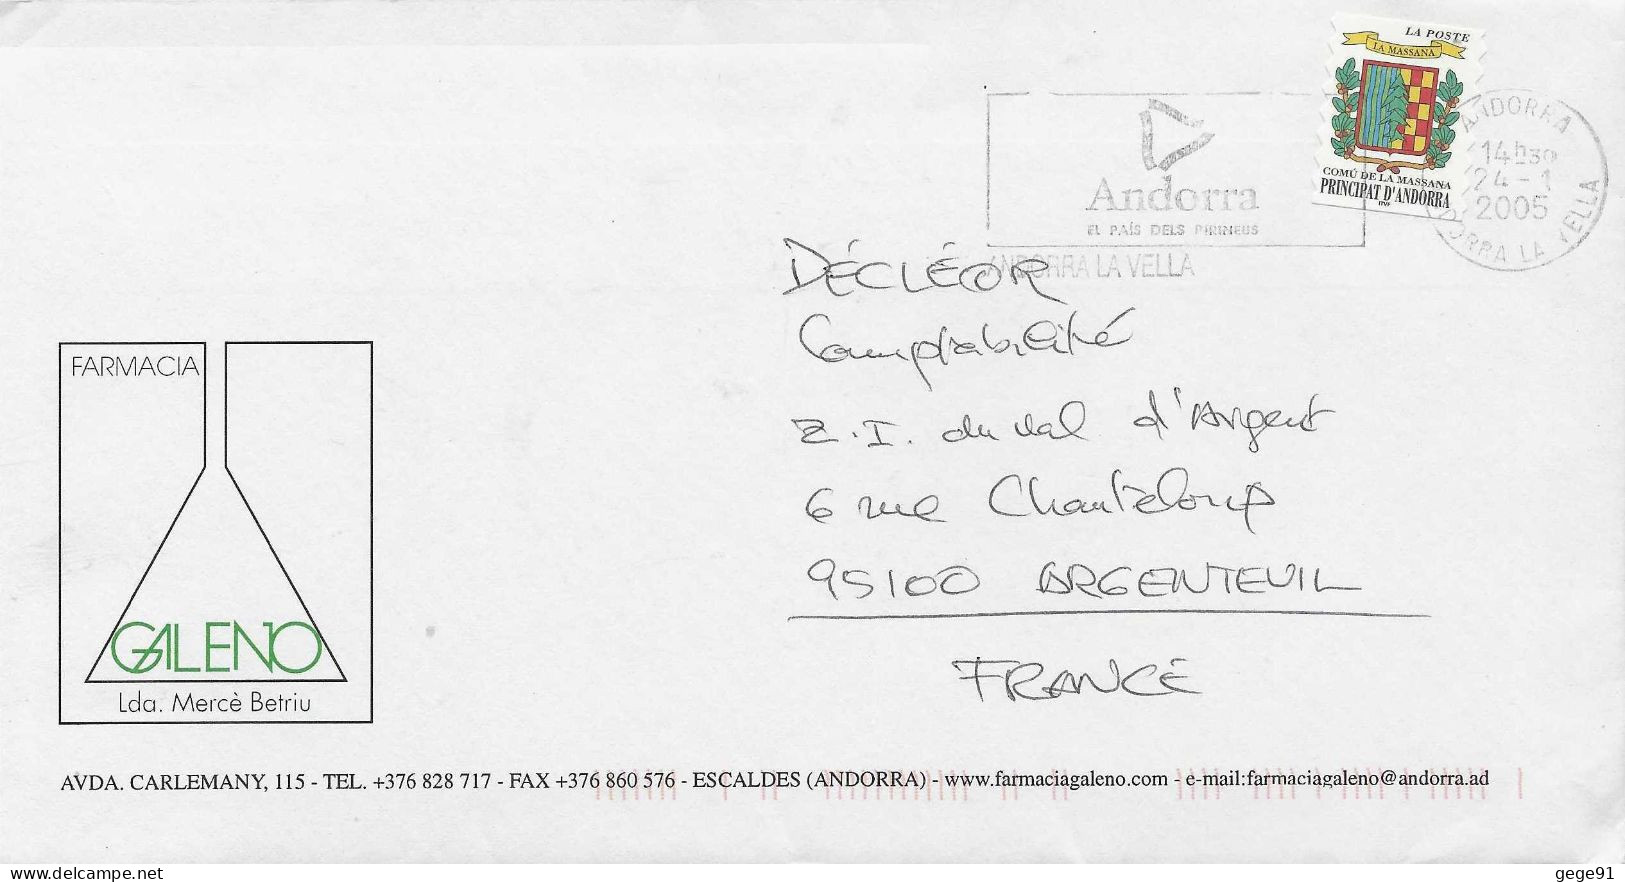 LA POSTE
LA MASSANA
COMÚ DE LA MASSANA
PRINCIPAT D'ANDORRA
ANDORRA
14h30
24-1
2005
ANDORRA LA VELLA
Andorra
EL PAÍS DELS PIRINEUS
ANDORRA LA VELLA
DÉCLÉOR
Comptabilité
Z.I. du Val d'Argent
6 rue Chanteloup
95100 ARGENTEUIL
FRANCE
FARMACIA
GALENO
Lda. Mercè Betriu
AVDA. CARLEMANY, 115 - TEL. +376 828 717 - FAX +376 860 576 - ESCALDES (ANDORRA) - www.farmaciagaleno.com - e-mail:farmaciagaleno@andorra.ad
delcampe.net
gege91